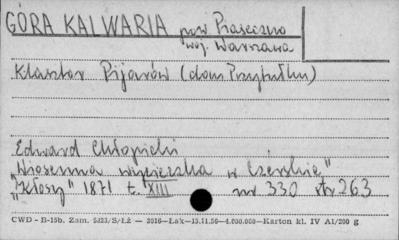 GÓRA KALWARIA pow Piaseczno
woj. Warszawa
Klasztor Pijarów (dom Przytułku)
Edward Chłopicki
Wiosenna wycieczka w Czerskie"
"Kłosy" 1871 t. XIII nr 330 str 263
CWD - B-15b. Zam. 5323/S/Łż — 2016—Łak—13.11.56—4.000.000—Karton kl. IV A1/200 g